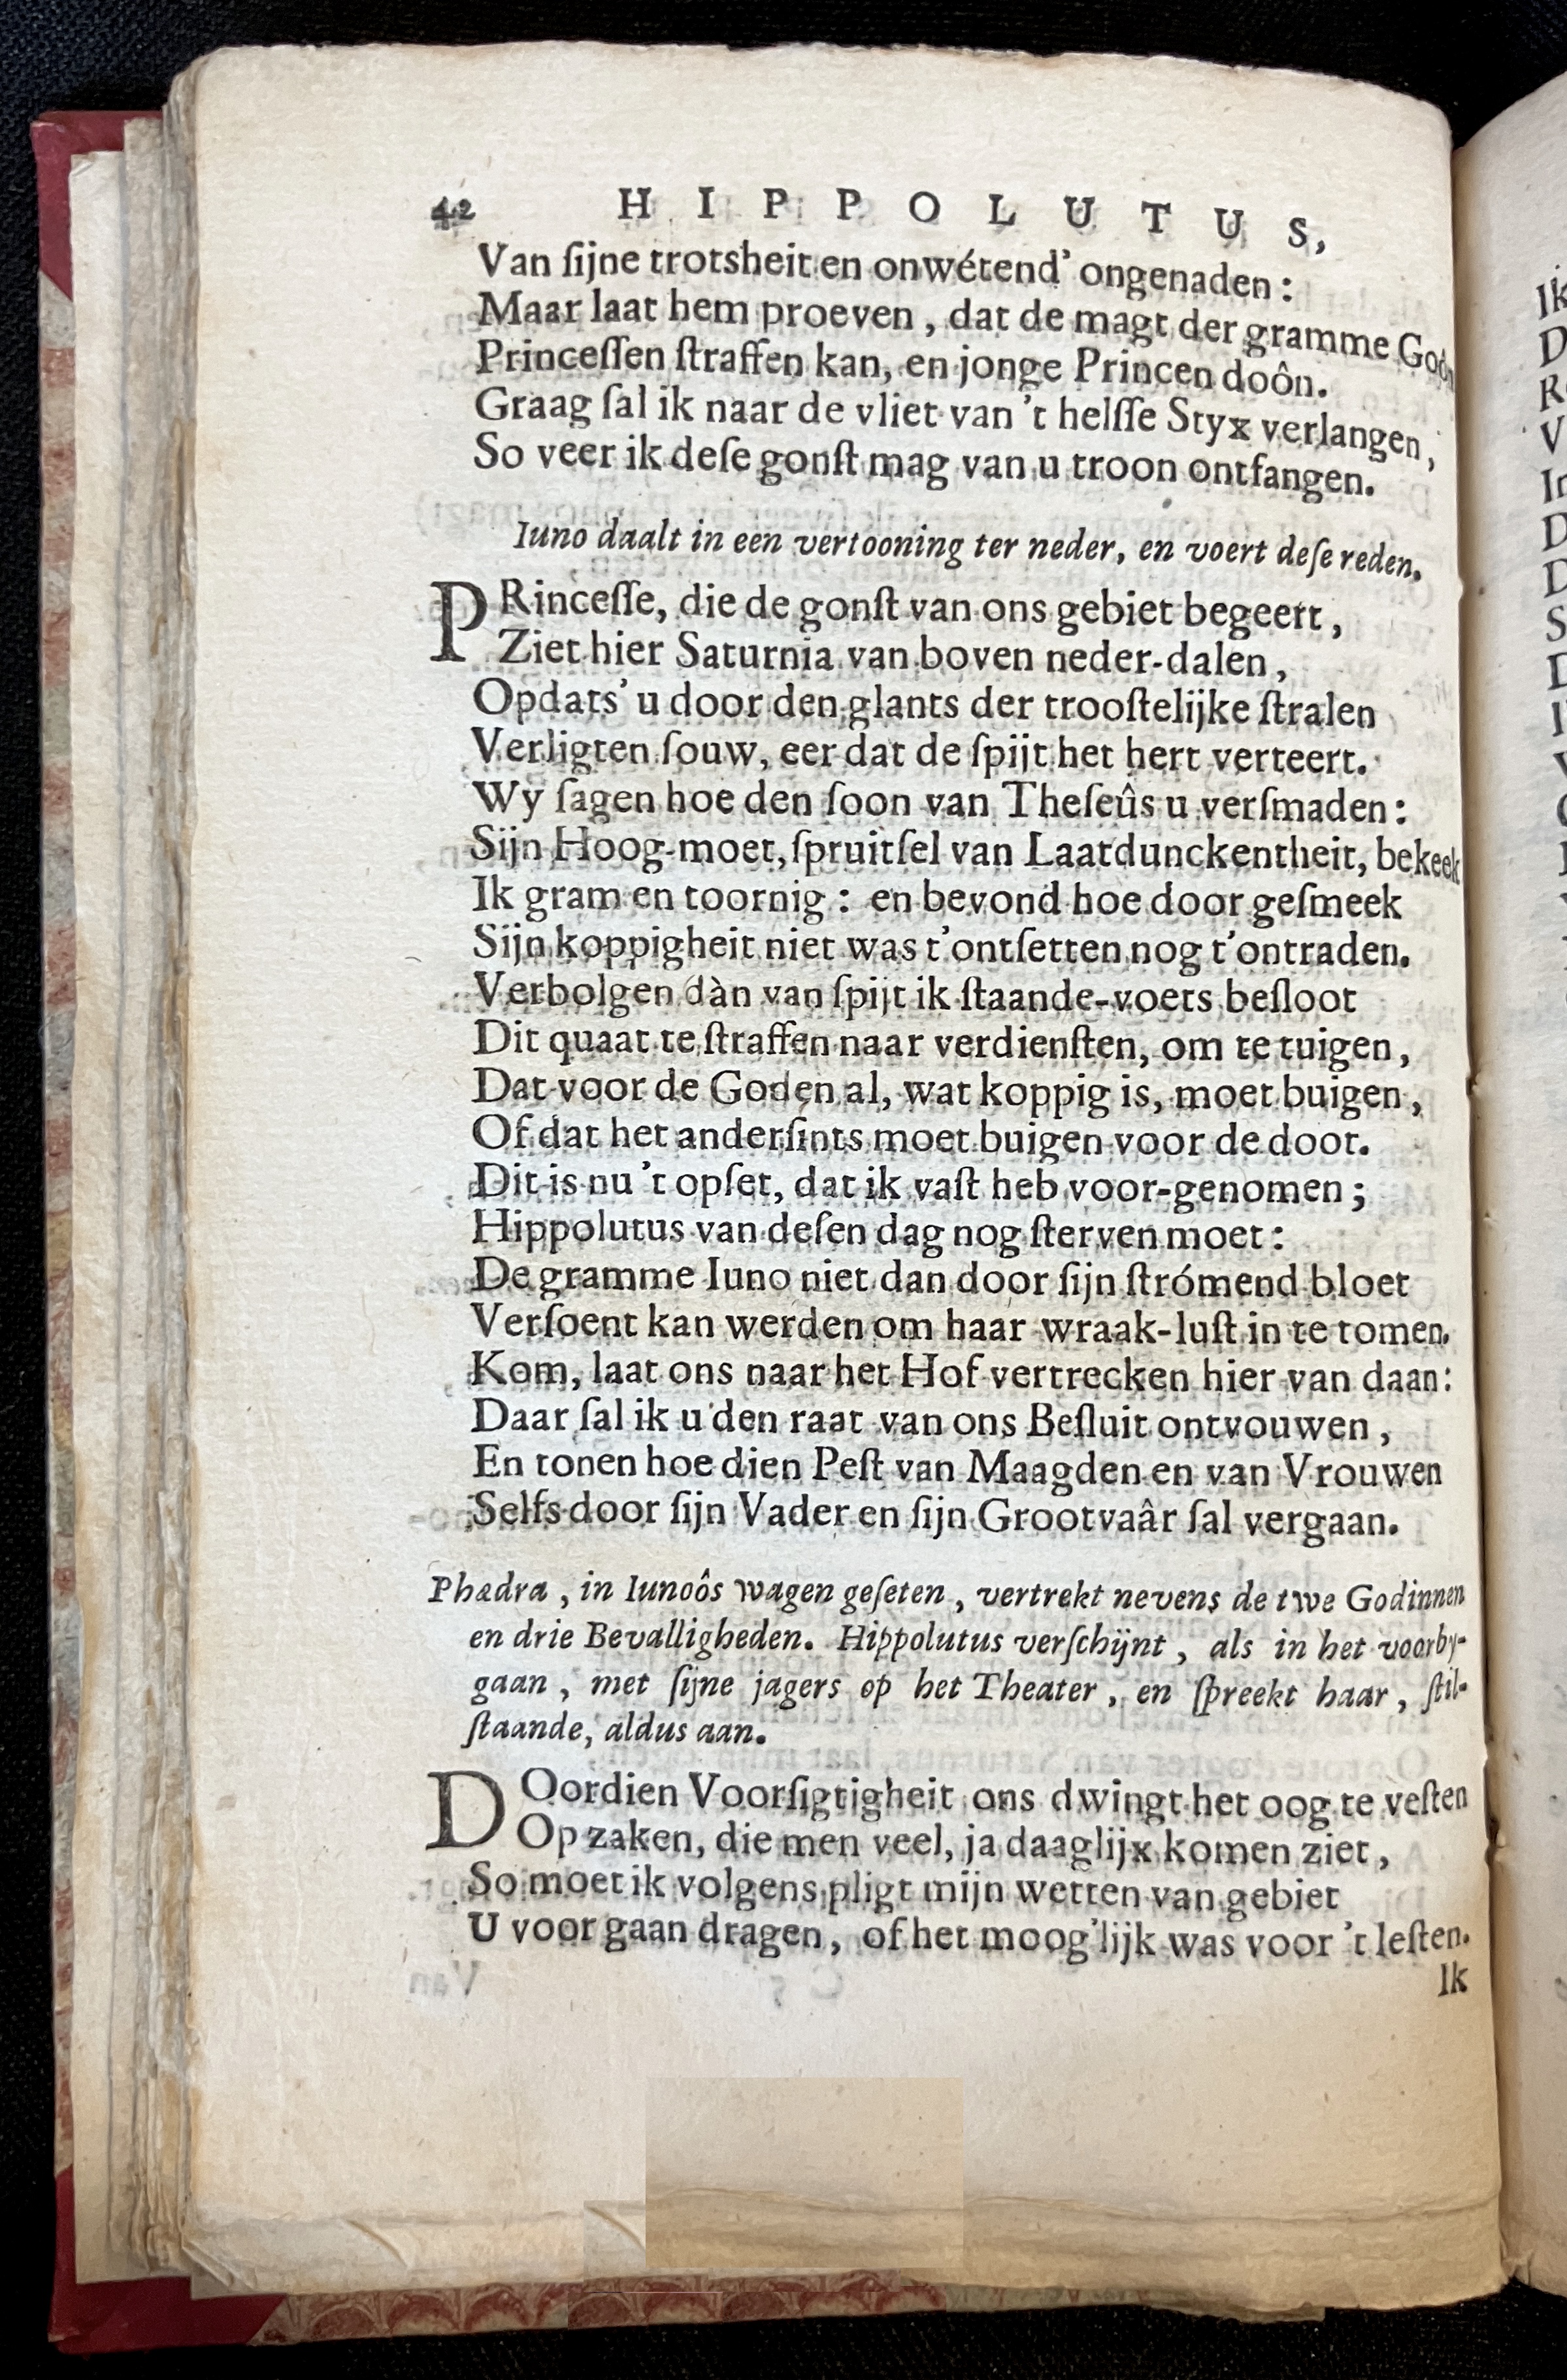 42 HIPPOLUTUS,
Van ſijne trotsheit en onwétend' ongenaden:
Maar laat hem proeven, dat de magt der gramme Goôn
Princeſſen ſtraffen kan, en jonge Princen doôn.
Graag ſal ik naar de vliet van 't helſſe Styx verlangen,
So veer ik deſe gonſt mag van u troon ontfangen.
Iuno daalt in een vertooning ter neder, en voert deſe reden.
PRinceſſe, die de gonſt van ons gebiet begeert,
Ziet hier Saturnia van boven neder-dalen,
Opdats' u door den glants der trooſtelijke ſtralen
Verligten ſouw, eer dat de ſpijt het hert verteert.
Wy ſagen hoe den ſoon van Theſeûs u verſmaden:
Sijn Hoog-moet, ſpruitſel van Laatdunckentheit, bekeek
Ik gram en toornig: en bevond hoe door geſmeek
Sijn koppigheit niet was t'ontſetten nog t'ontraden.
Verbolgen dàn van ſpijt ik ſtaande-voets beſloot
Dit quaat te ſtraffen naar verdienſten, om te tuigen,
Dat voor de Goden al, wat koppig is, moet buigen,
Of dat het anderſints moet buigen voor de doot.
Dit is nu 't opſet, dat ik vaſt heb voor-genomen;
Hippolutus van deſen dag nog ſterven moet:
De gramme Iuno niet dan door ſijn ſtrómend bloet
Verſoent kan werden om haar wraak-luſt in te tomen.
Kom, laat ons naar het Hof vertrecken hier van daan:
Daar ſal ik u den raat van ons Beſluit ontvouwen,
En tonen hoe dien Peſt van Maagden en van Vrouwen
Selfs door ſijn Vader en ſijn Grootvaâr ſal vergaan.
Phædra, in Iunoôs wagen geſeten, vertrekt nevens de twe Godinnen
en drie Bevalligheden. Hippolutus verſchijnt, als in het voorby-
gaan, met ſijne jagers op het Theater, en ſpreekt haar, ſtil-
ſtaande, aldus aan.
DOordien Voorſigtigheit ons dwingt het oog te veſten
Op zaken, die men veel, ja daaglijx komen ziet,
So moet ik volgens pligt mijn wetten van gebiet
U voor gaan dragen, of het moog'lijk was voor 't leſten.
Ik